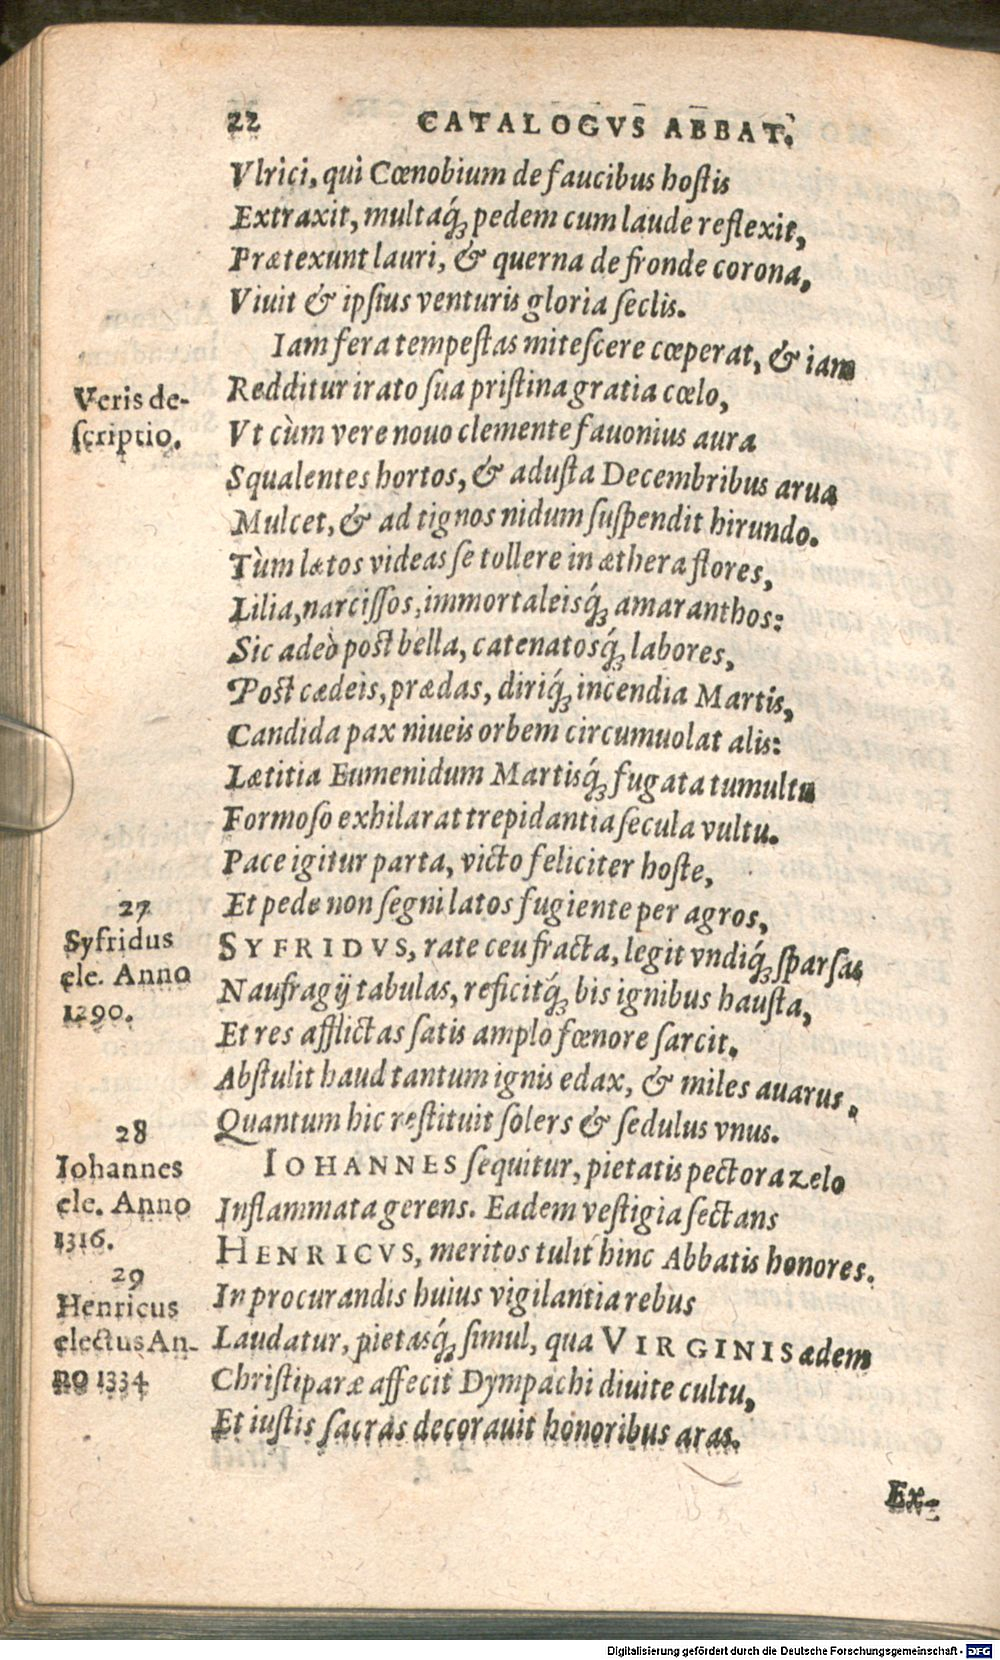 22 CATALOGVS ABBAT.
Vlrici, qui Cœnobium de faucibus hostis
Extraxit, multaq́; pedem cum laude reflexit,
Prætexunt lauri, & querna de fronde corona,
Viuit & ipsius venturis gloria seclis.
Iam fera tempestas mitescere cœperat, & iam
Veris de-
scriptio.
Redditur irato sua pristina gratia cœlo,
Vt cùm vere nouo clemente fauonius aura
Squalentes hortos, & adusta Decembribus arua
Mulcet, & ad tignos nidum suspendit hirundo.
Tùm lætos videas se tollere in æthera flores,
Lilia, narcissos, immortaleisq́; amaranthos:
Sic adeò post bella, catenatosq́; labores,
Post cædeis, prædas, diriq́; incendia Martis,
Candida pax niueis orbem circumuolat alis:
Lætitia Eumenidum Martisq́; fugata tumultu
Formoso exhilarat trepidantia secula vultu.
Pace igitur parta, victo feliciter hoste,
Et pede non segni latos fugiente per agros,
27
Syfridus
ele. Anno
1290.
SYFRIDVS, rate ceu fracta, legit vndiq́; sparsas
Naufragij tabulas, reficitq́; bis ignibus hausta,
Et res afflictas satis amplo fœnore sarcit.
Abstulit haud tantum ignis edax, & miles auarus,
Quantum hic restituit solers & sedulus vnus.
28
Iohannes
ele. Anno
1316.
IOHANNES sequitur, pietatis pectora zelo
Inflammata gerens. Eadem vestigia sectans
29
Henricus
electus An-
no 1334
HENRICVS, meritos tulit hinc Abbatis honores.
In procurandis huius vigilantia rebus
Laudatur, pietasq́; simul, qua VIRGINIS ædem
Christiparæ affecit Dympachi diuite cultu,
Et iustis sacras decorauit honoribus aras.
Ex-
Digitalisierung gefördert durch die Deutsche Forschungsgemeinschaft - DFG